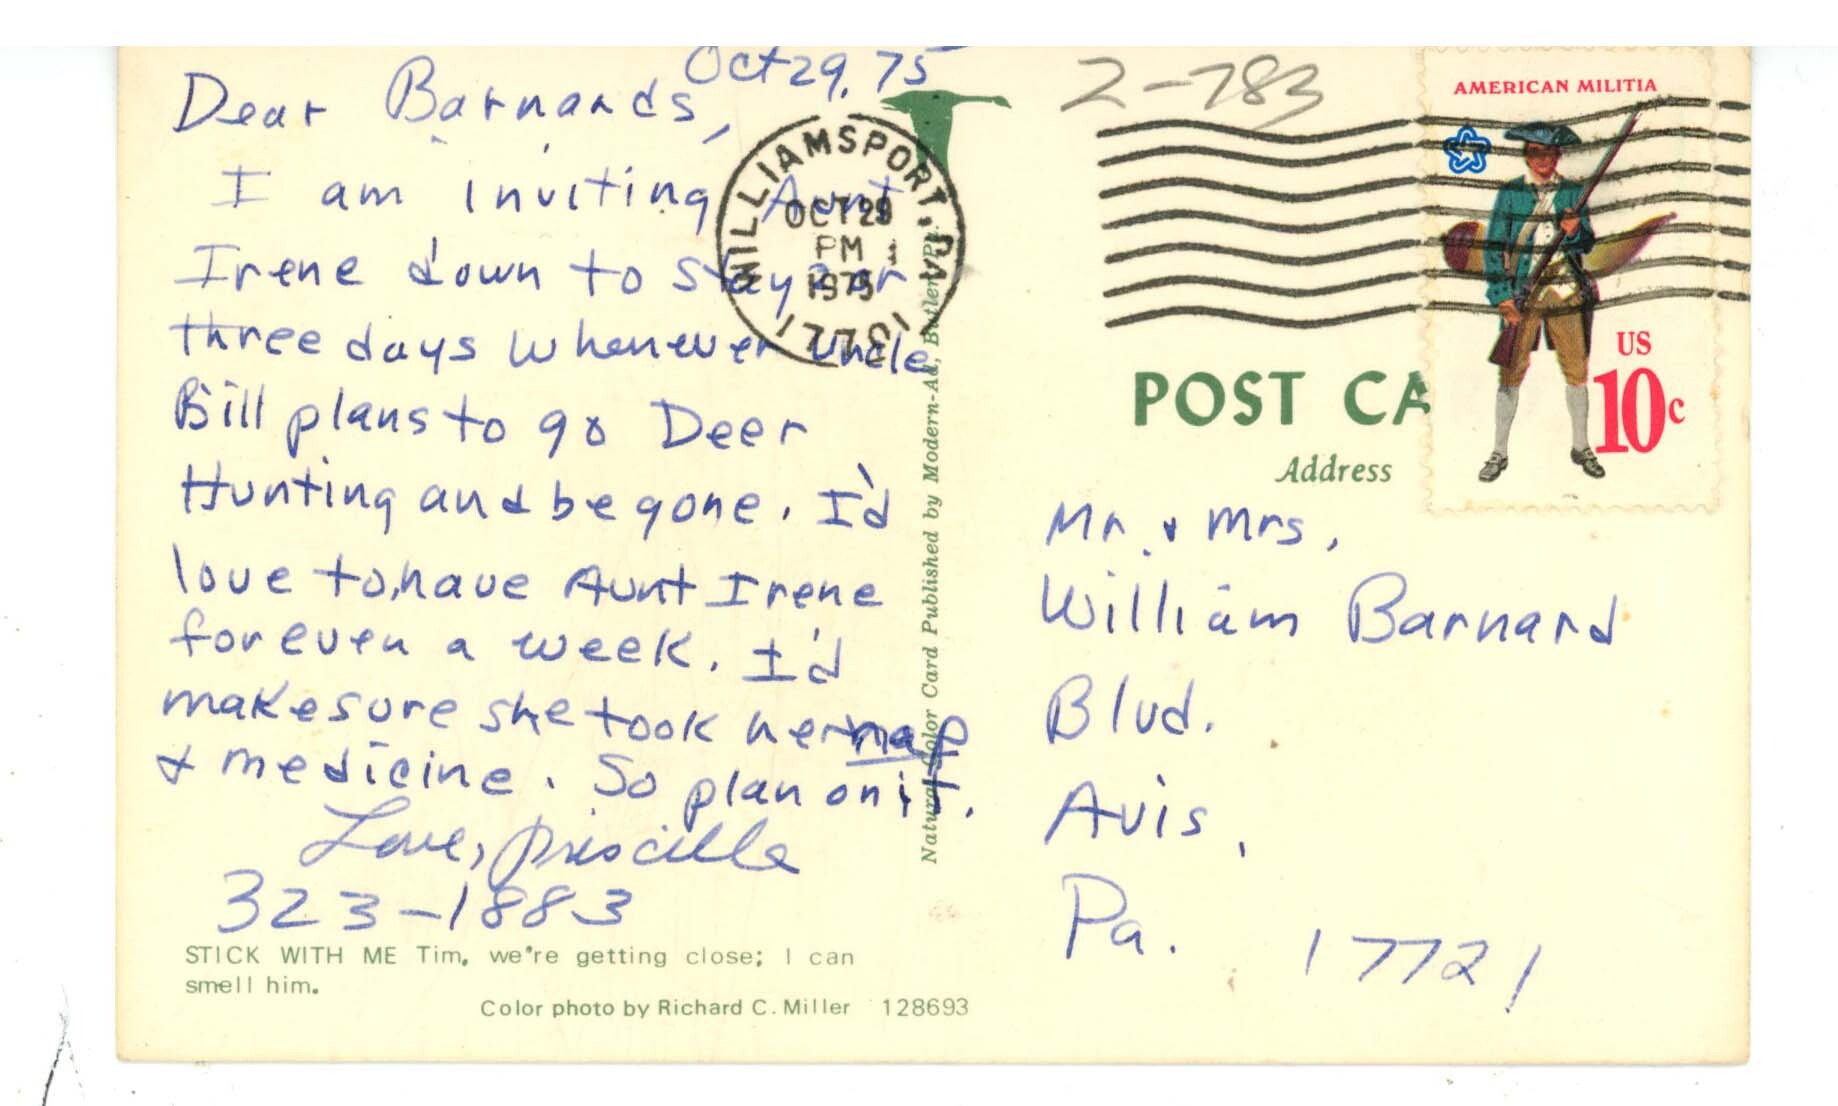 Oct 29, 75
Dear Barnards,
I am inviting Aunt
Irene down to stay 2 or
three days whenever Uncle
Bill plans to go Deer
Hunting and be gone. I'd
love to have Aunt Irene
for even a week. I'd
make sure she took her nap
& medicine. So plan on it.
Love, Priscilla
323-1883
STICK WITH ME Tim, we're getting close; I can
smell him.
Color photo by Richard C. Miller 128693
Natural Color Card Published by Modern-Ad, Butler, Pa.
WILLIAMSPORT, PA 17701
OCT 29
PM
1975
2-783
AMERICAN MILITIA
US
10c
POST CA
Address
Mr. & Mrs,
William Barnard
Blvd.
Avis,
Pa. 17721